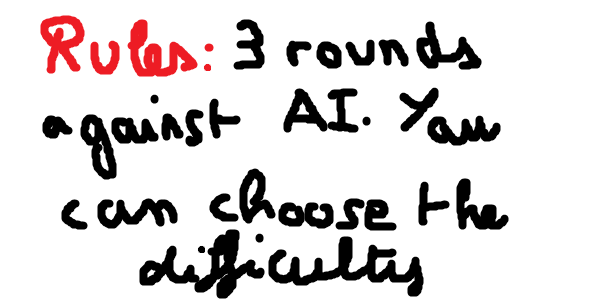 Rules: 3 rounds
against AI. You
can choose the
difficulty